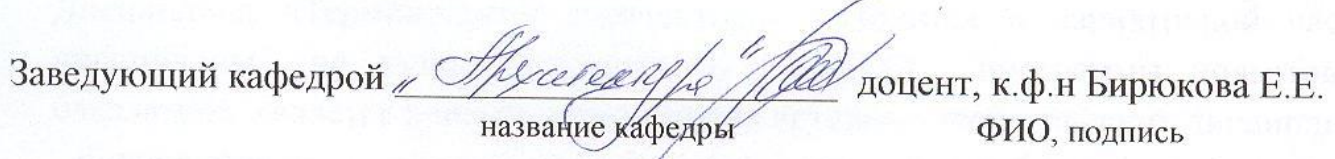 Заведующий кафедрой „Архитектура" доцент, к.ф.н Бирюкова Е.Е.
название кафедры ФИО, подпись